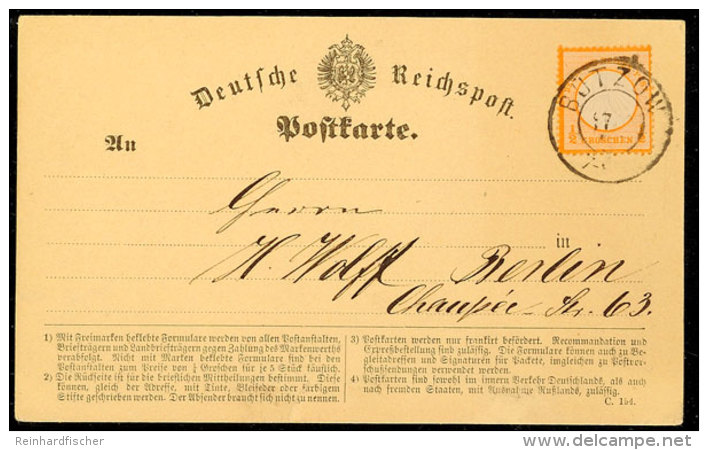 Deutsche Reichspost.
Postkarte.
BÜTZOW
17
½ GROSCHEN ½
An
Herrn
in
H. Wolff Berlin
Chaussée-Str. 63.
1) Mit Freimarken beklebte Formulare werden von allen Postanstalten,
Briefträgern und Landbriefträgern gegen Zahlung des Markenwerths
verabfolgt. Nicht mit Marken beklebte Formulare sind bei den
Postanstalten zum Preise von ¼ Groschen für je 5 Stück käuflich.
2) Die Rückseite ist für die brieflichen Mittheilungen bestimmt. Diese
können, gleich der Adresse, mit Tinte, Bleifeder oder farbigem
Stifte geschrieben werden. Der Absender braucht sich nicht zu nennen.
3) Postkarten werden nur frankirt befördert. Recommandation und
Expreßbestellung sind zulässig. Die Formulare können auch zu Be-
gleitadressen und Signaturen für Packete, imgleichen zu Postvor-
schußsendungen verwendet werden.
4) Postkarten sind sowohl im innern Verkehr Deutschlands, als auch
nach fremden Staaten, mit Ausnahme Rußlands, zulässig.
C. 154.
Reinhardfischer
delcampe.net